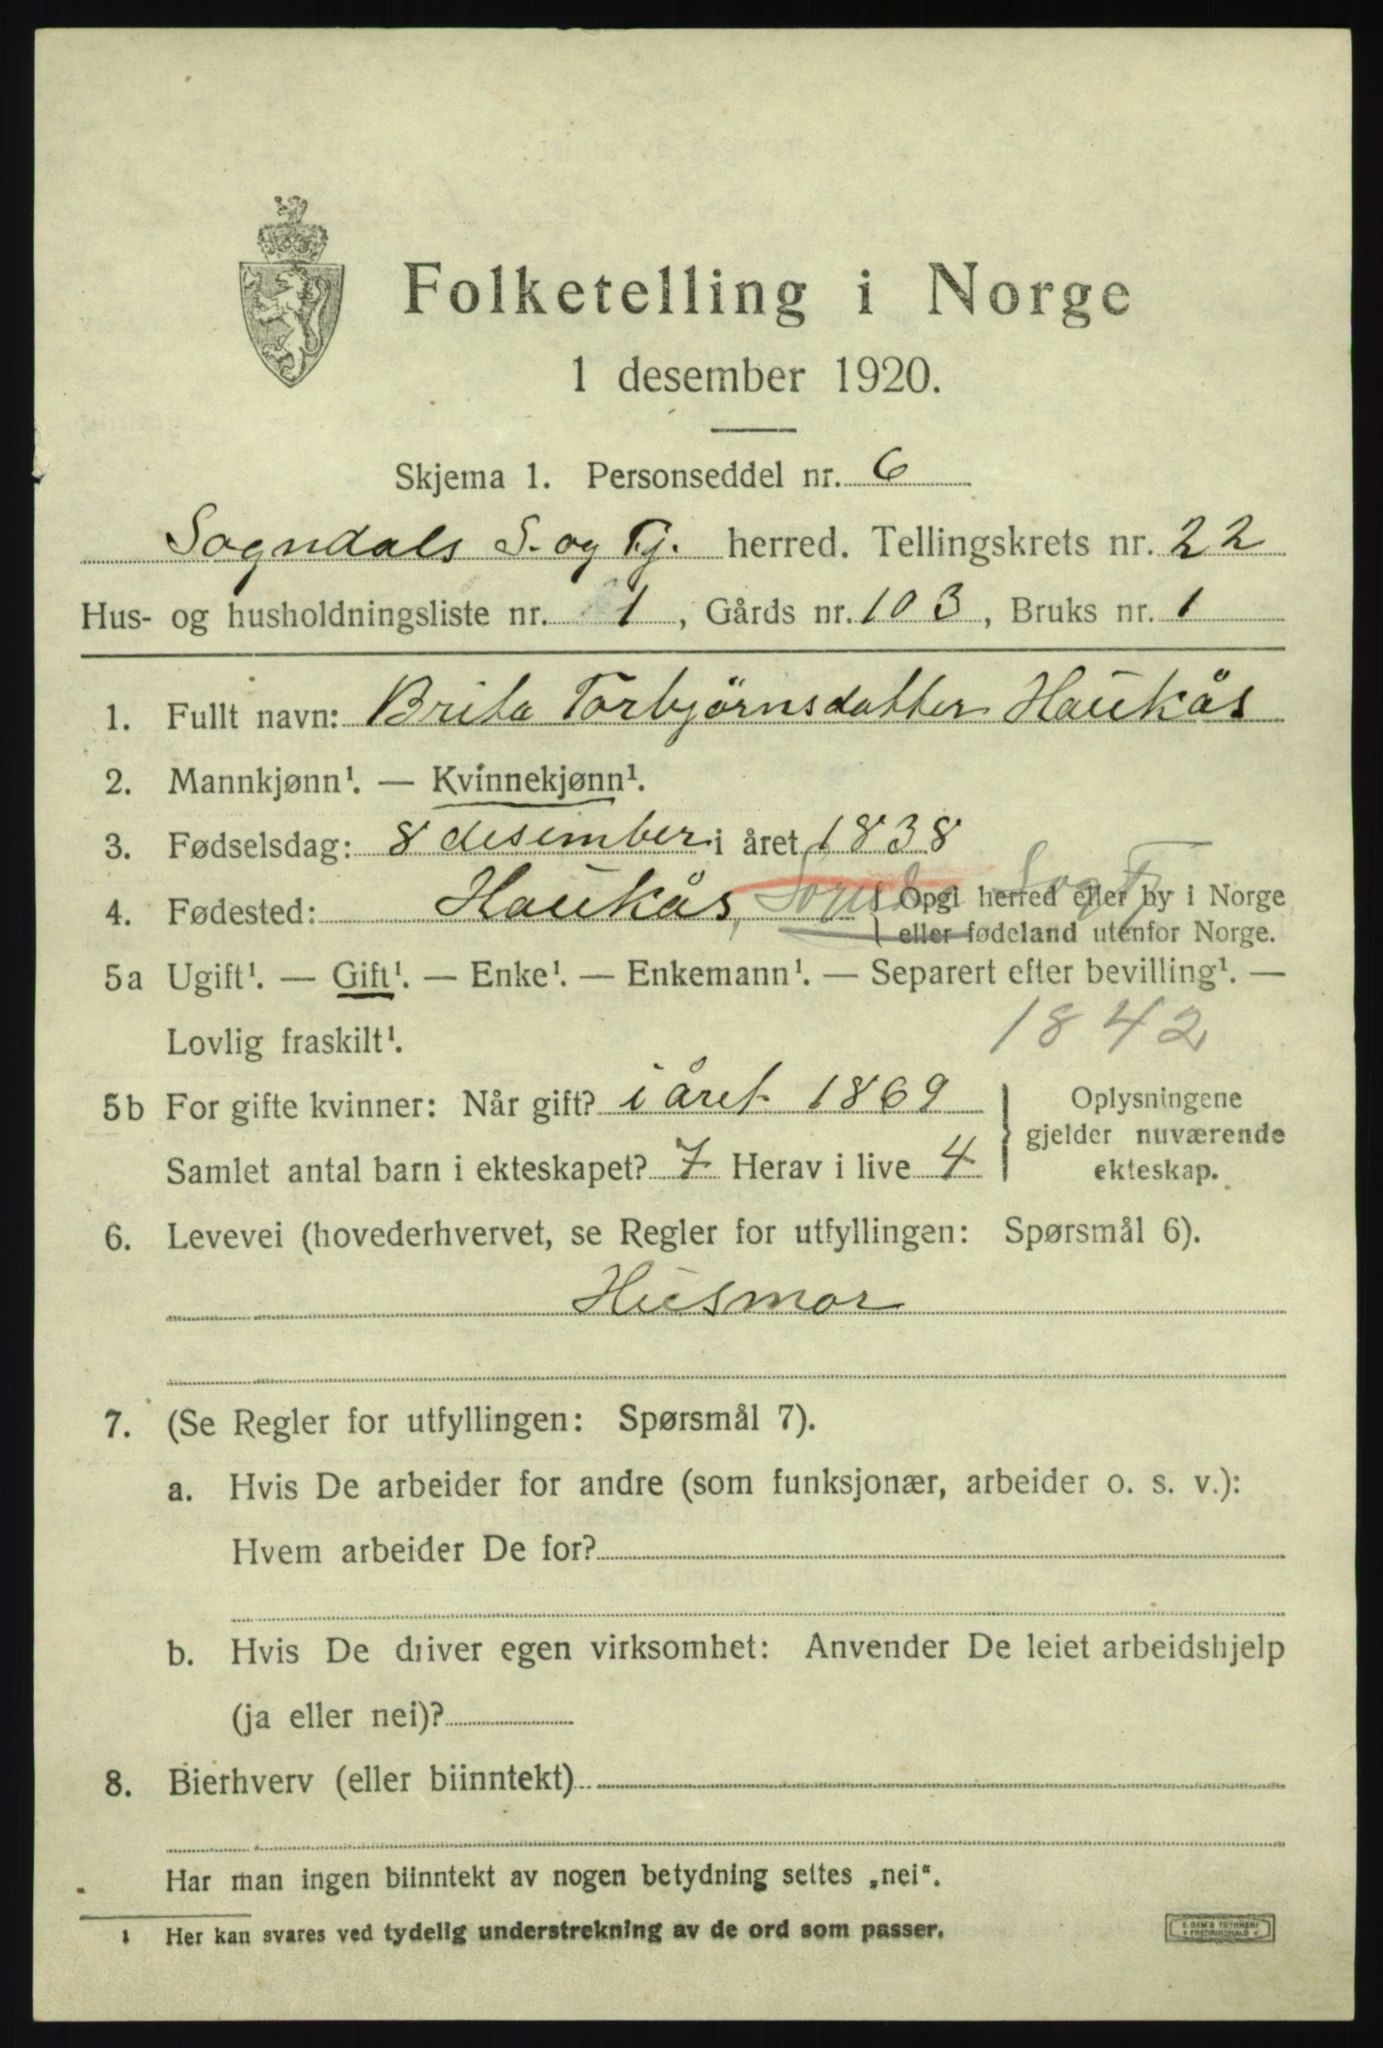 Folketelling i Norge
1 desember 1920.
Skjema 1. Personseddel nr. 6
Sogndals S. og Fj. herred. Tellingskrets nr. 22
Hus- og husholdningsliste nr. 1, Gårds nr. 103, Bruks nr. 1
1. Fullt navn: Brita Torbjörnsdatter Haukås
2. Mannkjønn¹. — Kvinnekjønn¹.
3. Fødselsdag: 8 desember i året 1838
4. Fødested: Haukås, { Opgi herred eller by i Norge
eller fødeland utenfor Norge.
5a Ugift¹. — Gift¹. — Enke¹. — Enkemann¹. — Separert efter bevilling¹. —
Lovlig fraskilt¹. 1842
5b For gifte kvinner: Når gift? i året 1869
Samlet antal barn i ekteskapet? 7 Herav i live 4
Oplysningene
gjelder nuværende
ekteskap.
6. Levevei (hovederhvervet, se Regler for utfyllingen: Spørsmål 6).
Husmor
7. (Se Regler for utfyllingen: Spørsmål 7).
a. Hvis De arbeider for andre (som funksjonær, arbeider o. s. v.):
Hvem arbeider De for?
b. Hvis De driver egen virksomhet: Anvender De leiet arbeidshjelp
(ja eller nei)?
8. Bierhverv (eller biinntekt)
Har man ingen biinntekt av nogen betydning settes „nei“.
¹ Her kan svares ved tydelig understrekning av de ord som passer.